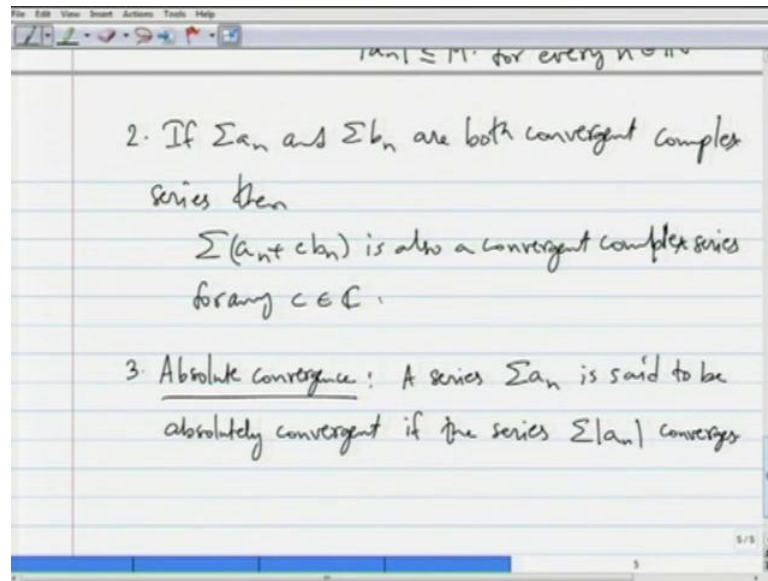 File Edit View Insert Actions Tools Help
|an| ≤ M. for every n ∈ ℕ
2. If Σan and Σbn are both convergent complex
series then
Σ(an + cbn) is also a convergent complex series
for any c ∈ ℂ.
3. Absolute convergence : A series Σan is said to be
absolutely convergent if the series Σ|an| converges
5/5
5